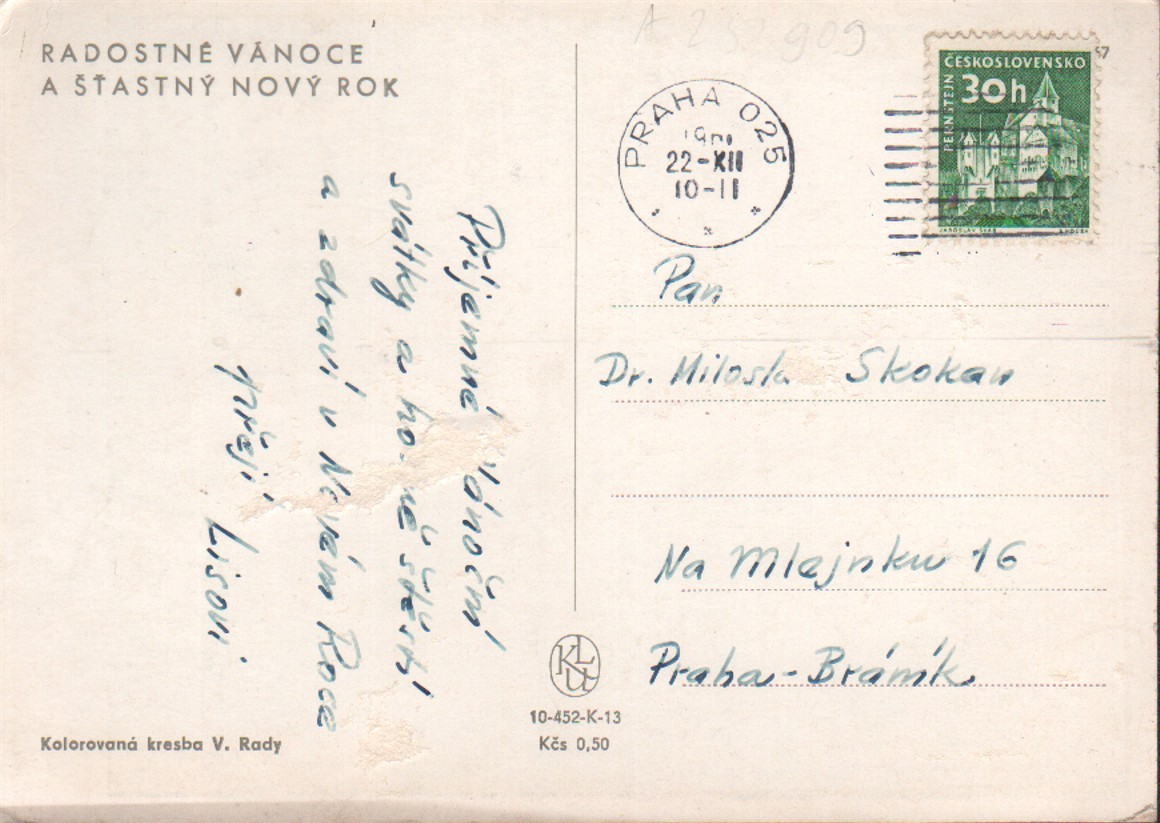 RADOSTNÉ VÁNOCE
A ŠŤASTNÝ NOVÝ ROK
A 252 909
ČESKOSLOVENSKO
30h
PERNŠTEJN
JAROSLAV
57
PRAHA 025
22-XII
10-11
Příjemné vánoční
svátky a ho né štěstí
a zdraví v Novém Roce
přejí Lisovi
Pan
Dr. Milosla Skokan
Na Mlejnku 16
Praha-Bráník
KLU
10-452-K-13
Kčs 0,50
Kolorovaná kresba V. Rady